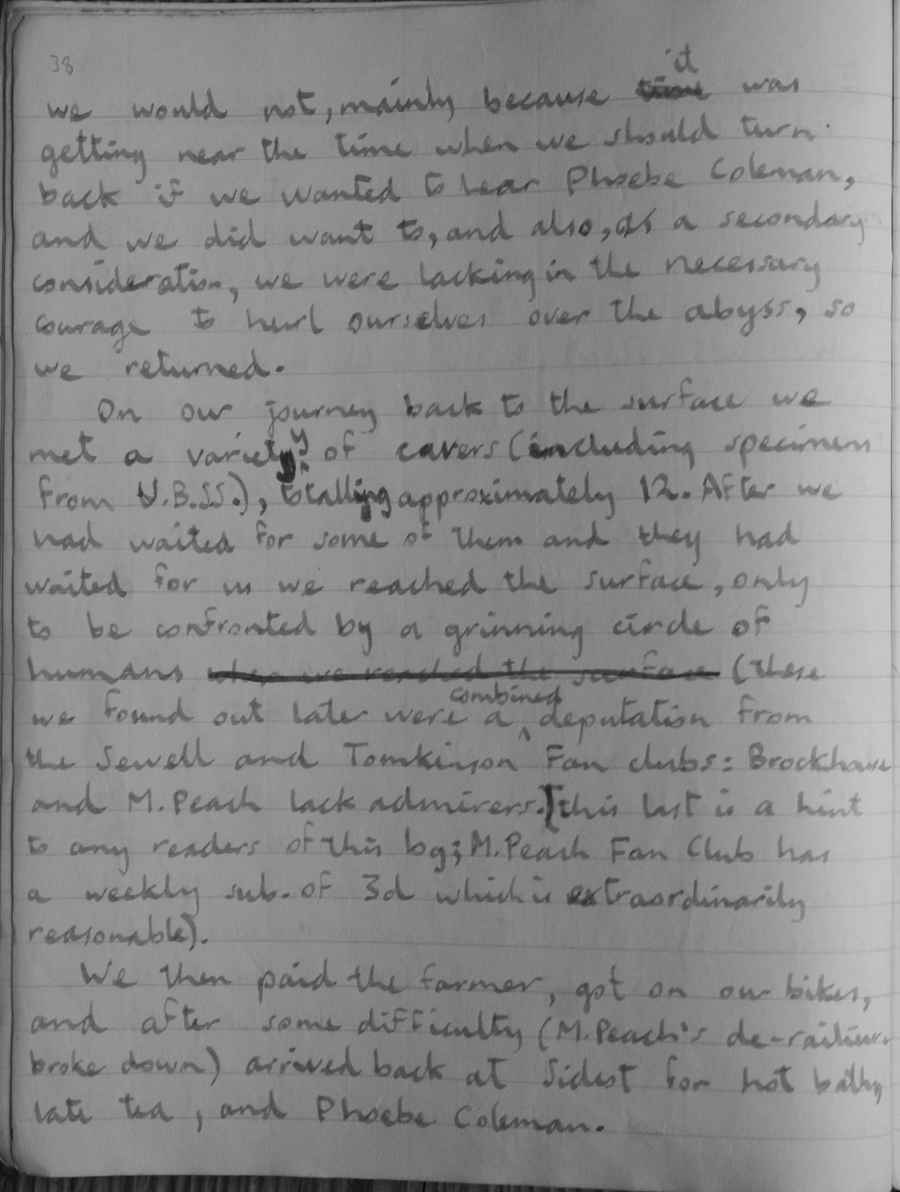 38
we would not, mainly because it was
getting near the time when we should turn
back if we wanted to hear Phoebe Coleman,
and we did want to, and also, as a secondary
consideration, we were lacking in the necessary
courage to hurl ourselves over the abyss, so
we returned.
On our journey back to the surface we
met a variety of cavers (including specimens
from U.B.SS.), totalling approximately 12. After we
had waited for some of them and they had
waited for us we reached the surface, only
to be confronted by a grinning circle of
humans when we reached the surface (these
we found out later were a combined deputation from
the Sewell and Tomkinson Fan clubs: Brockhouse
and M. Peach lack admirers. [this last is a hint
to any readers of this log; M. Peach Fan Club has
a weekly sub. of 3d which is extraordinarily
reasonable).
We then paid the farmer, got on our bikes,
and after some difficulty (M. Peach's de-railieur
broke down) arrived back at Sidcot for hot baths,
late tea, and Phoebe Coleman.